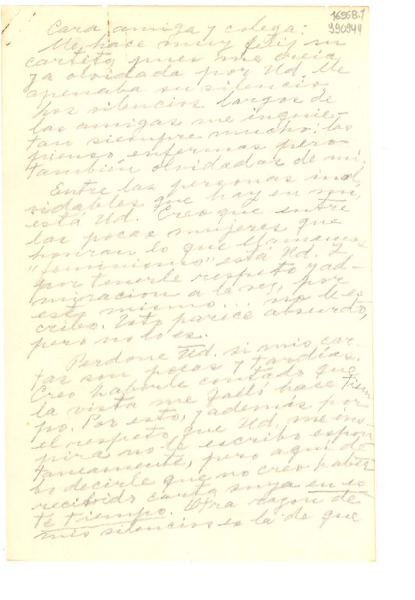 1695B.1
990944
Cara amiga y colega:
Me hace muy feliz su
cartita pues me creía
ya olvidada por Ud. Me
apenaba su silencio.
Los silencios largos de
las amigas me inquie-
tan siempre mucho: las
pienso enfermas pero
también olvidadas de mí.
Entre las personas inol-
vidables que hay en mí,
está Ud. Creo que entre
las pocas mujeres que
honran lo que llamamos
"feminismo" está Ud. Y
por tenerle respeto y ad-
miración a la vez, por
esto mismo... no le es-
cribo. Esto parece absurdo,
pero no lo es.
Perdone Ud. si mis car-
tas son pocas y tardías.
Creo haberle contado que
la vista me falló hace tiem-
po. Por esto, y además por
el respeto que Ud. me ins-
pira no le escribo espon-
táneamente, pero aquí de-
bo decirle que no creo haber
recibido carta suya en es-
te tiempo. Otra razón de
mis silencios es la de que